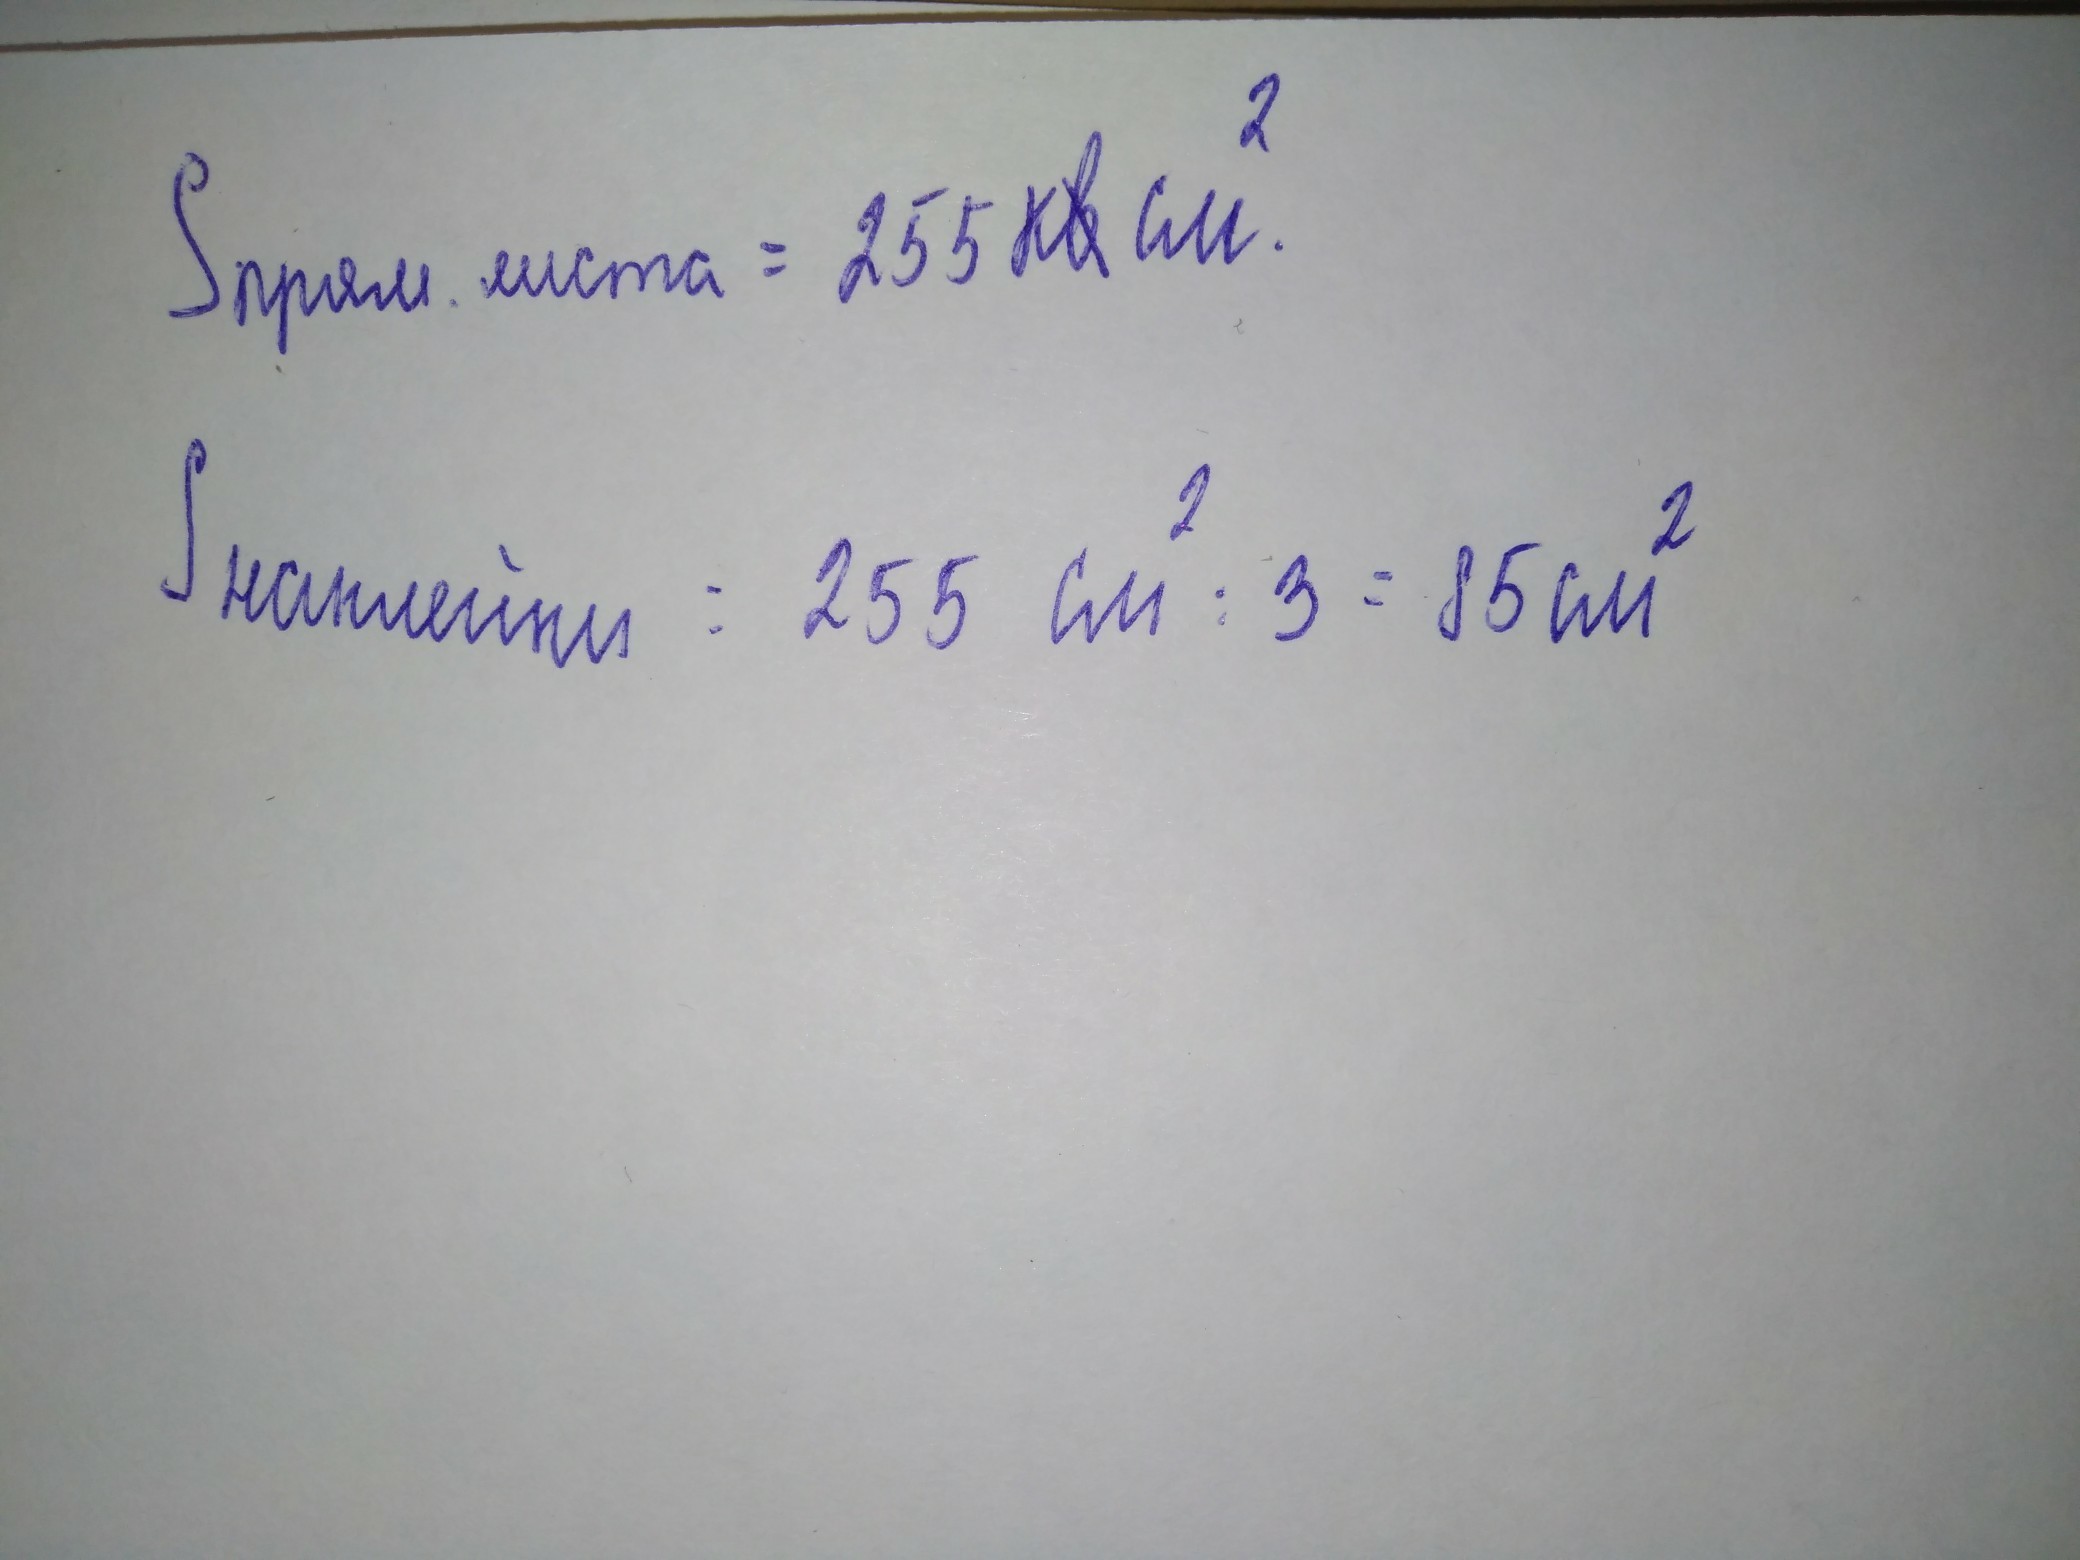 Sпрям. листа = 255 см².
Sнаклейки = 255 см² : 3 = 85 см²